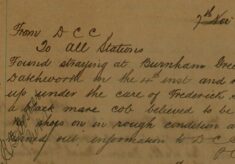 7th Nov
From D C C
To All Stations
Found straying at Burnham Gree
Datchworth on the 4th inst and
up under the care of Frederick
a black mare cob believed to be
shoes on in rough condition a
out information to D C